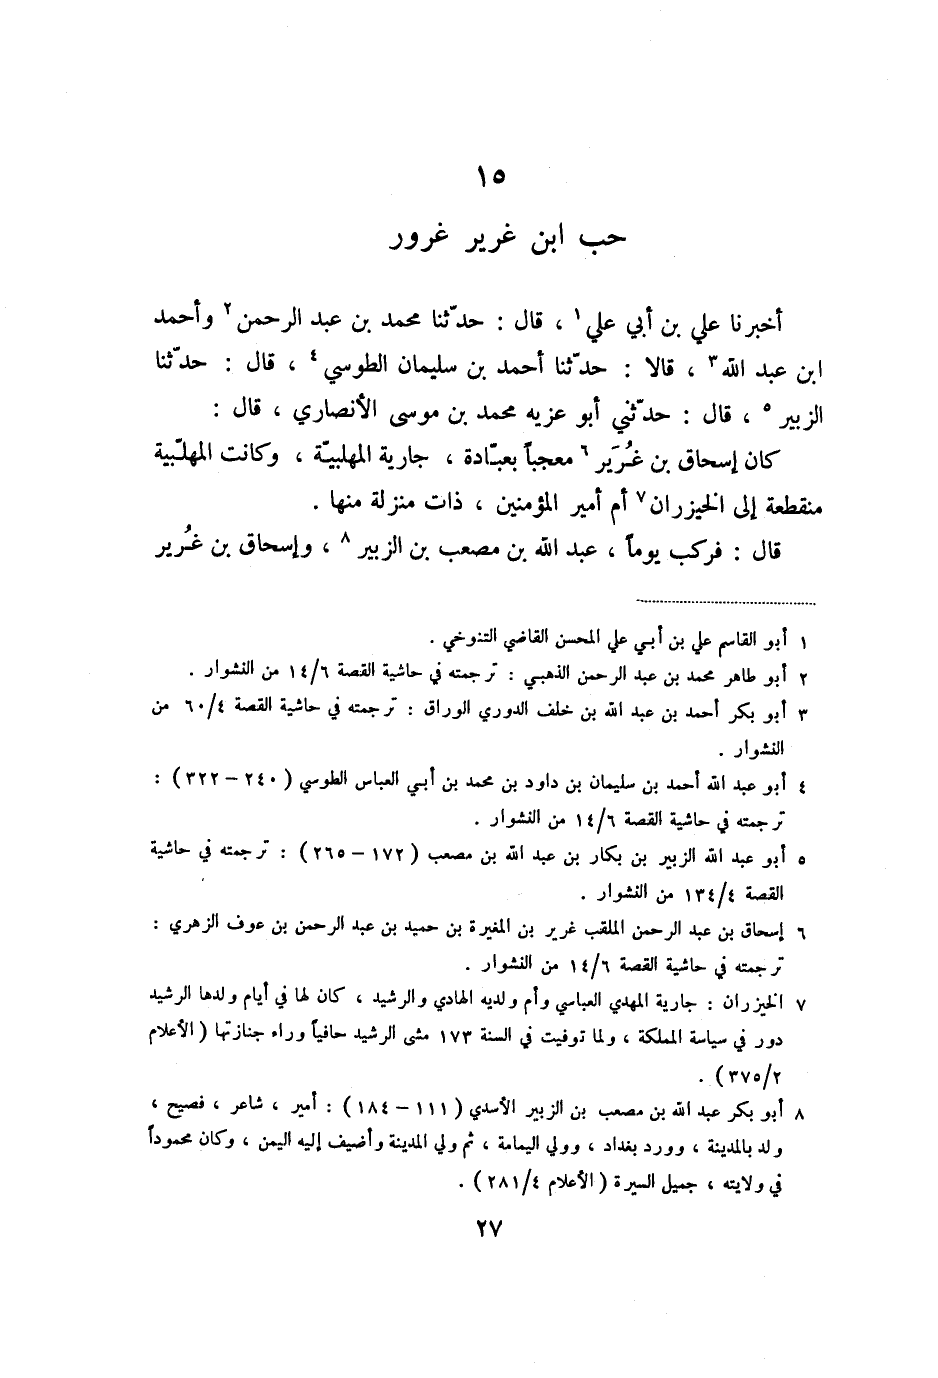 ١٥
حب ابن غرير غرور
أخبرنا علي بن أبي علي١ ، قال : حدّثنا محمد بن عبد الرحمن٢ وأحمد
ابن عبد الله٣ ، قالا : حدّثنا أحمد بن سليمان الطوسي٤ ، قال : حدّثنا
الزبير٥ ، قال : حدّثني أبو عزيه محمد بن موسى الأنصاري ، قال :
كان إسحاق بن غُرَير٦ معجباً بعبّادة ، جارية المهلبيّة ، وكانت المهلّبية
منقطعة إلى الخيزران٧ أم أمير المؤمنين ، ذات منزلة منها .
قال : فركب يوماً ، عبد الله بن مصعب بن الزبير٨ ، وإسحاق بن غُرير
١ أبو القاسم علي بن أبي علي المحسن القاضي التنوخي .
٢ أبو طاهر محمد بن عبد الرحمن الذهبي : ترجمته في حاشية القصة ١٤/٦ من النشوار .
٣ أبو بكر أحمد بن عبد الله بن خلف الدوري الوراق : ترجمته في حاشية القصة ٦٠/٤ من
النشوار .
٤ أبو عبد الله أحمد بن سليمان بن داود بن محمد بن أبي العباس الطوسي (٢٤٠ – ٣٢٢) :
ترجمته في حاشية القصة ١٤/٦ من النشوار .
٥ أبو عبد الله الزبير بن بكار بن عبد الله بن مصعب (١٧٢ – ٢٦٥) : ترجمته في حاشية
القصة ١٣٤/٤ من النشوار .
٦ إسحاق بن عبد الرحمن الملقب غرير بن المغيرة بن حميد بن عبد الرحمن بن عوف الزهري :
ترجمته في حاشية القصة ١٤/٦ من النشوار .
٧ الخيزران : جارية المهدي العباسي وأم ولديه الهادي والرشيد ، كان لها في أيام ولدها الرشيد
دور في سياسة المملكة ، ولما توفيت في السنة ١٧٣ مشى الرشيد حافياً وراء جنازتها (الأعلام
٣٧٥/٢) .
٨ أبو بكر عبد الله بن مصعب بن الزبير الأسدي (١١١ – ١٨٤) : أمير ، شاعر ، فصيح ،
ولد بالمدينة ، وورد بغداد ، وولي اليمامة ، ثم ولي المدينة وأضيف إليه اليمن ، وكان محموداً
في ولايته ، جميل السيرة (الأعلام ٢٨١/٤) .
٢٧